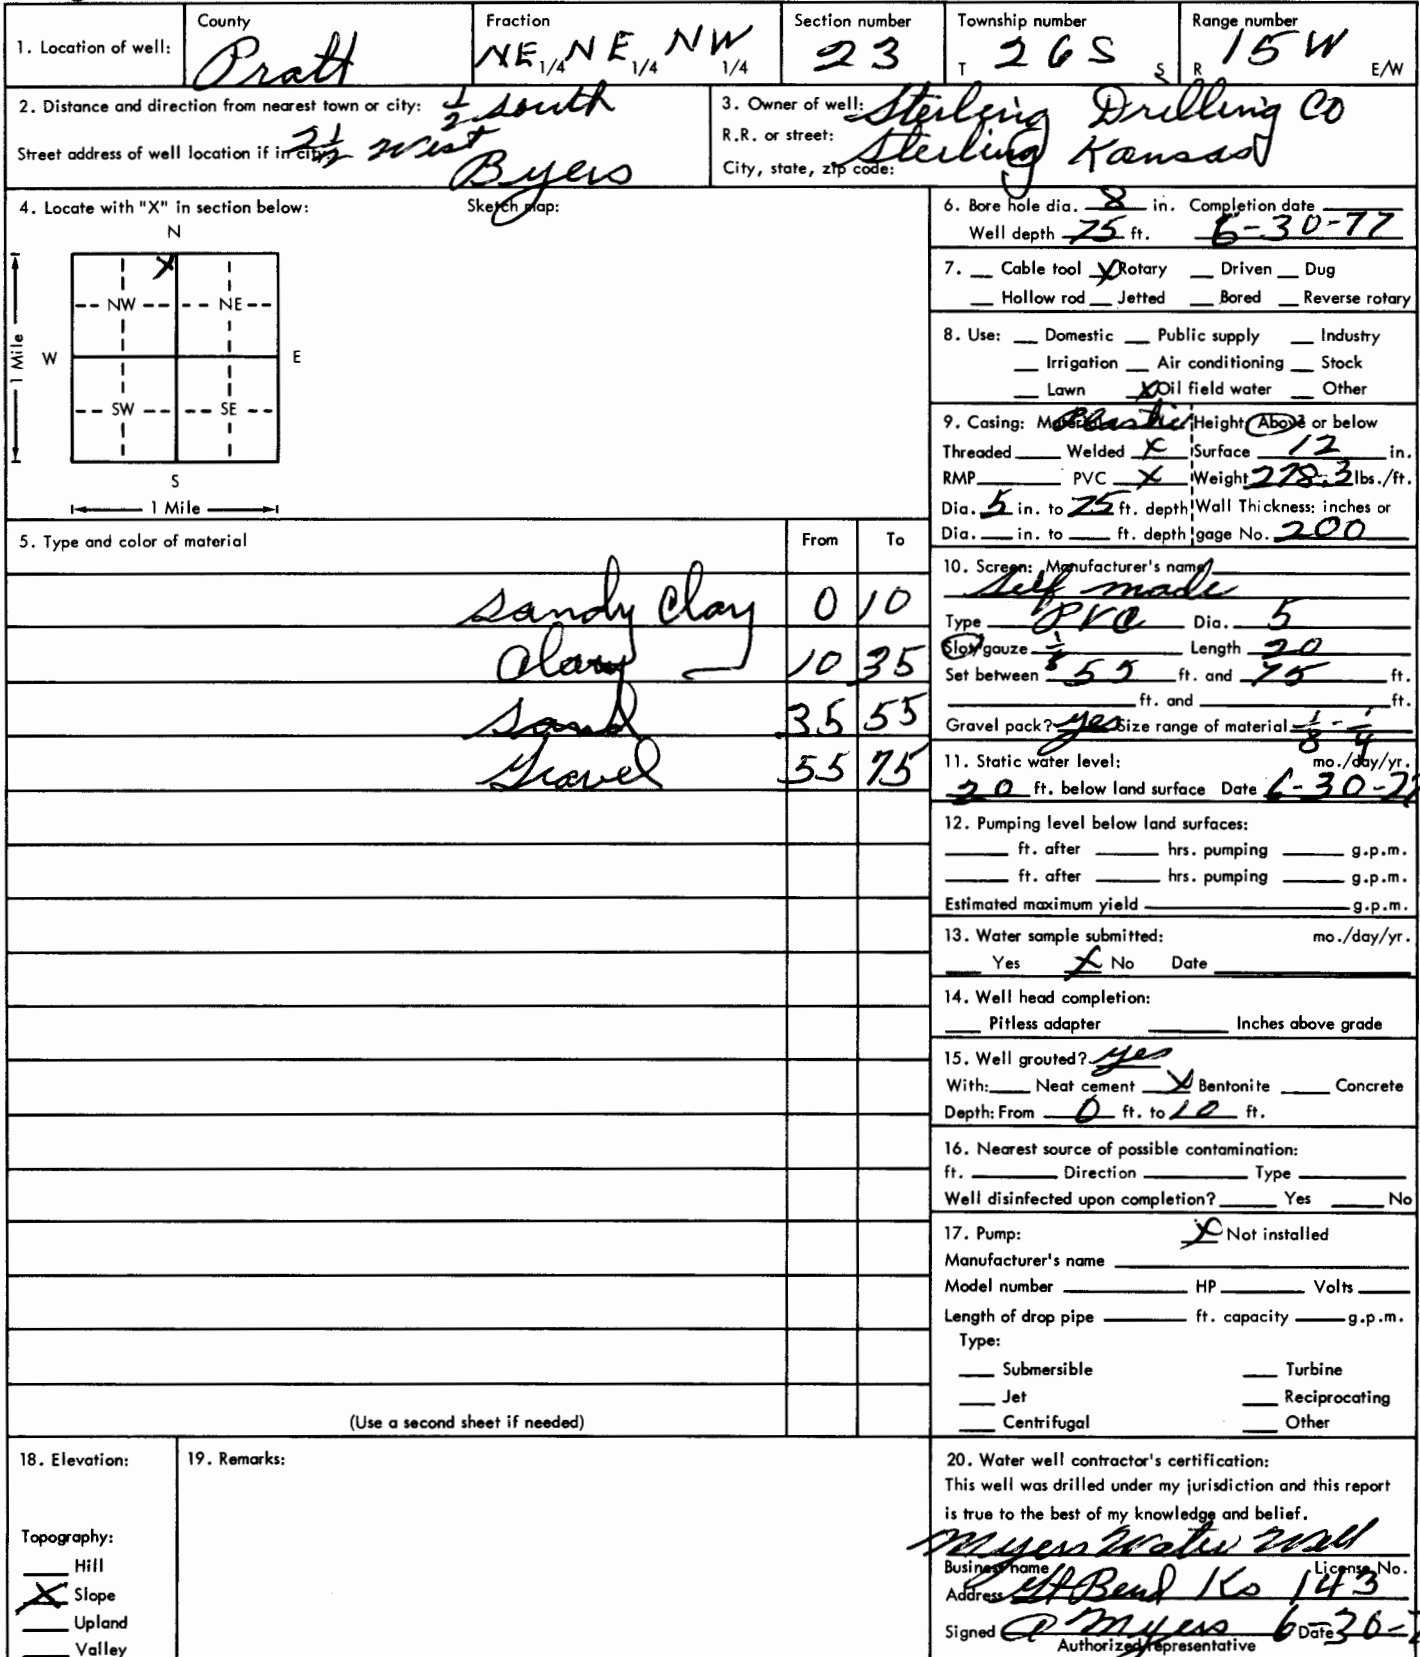 1. Location of well: County Pratt Fraction NE 1/4 NE 1/4 NW 1/4 Section number 23 Township number T 26S S Range number R 15W E/W
2. Distance and direction from nearest town or city: 1/2 south
Street address of well location if in city: 2 1/2 west
Byers
3. Owner of well: Sterling Drilling Co
R.R. or street:
City, state, zip code: Sterling Kansas
4. Locate with "X" in section below: Sketch map:
N
X
NW NE
W E
1 Mile
SW SE
S
1 Mile
5. Type and color of material From To
Sandy Clay 0 10
Clay 10 35
Sand 35 55
Gravel 55 75
(Use a second sheet if needed)
6. Bore hole dia. 8 in. Completion date
Well depth 75 ft. 6-30-77
7. Cable tool X Rotary Driven Dug
Hollow rod Jetted Bored Reverse rotary
8. Use: Domestic Public supply Industry
Irrigation Air conditioning Stock
Lawn X Oil field water Other
9. Casing: Material Plastic Height: Above or below
Threaded Welded X Surface 12 in.
RMP PVC X Weight 278.3 lbs./ft.
Dia. 5 in. to 75 ft. depth Wall Thickness: inches or
Dia. in. to ft. depth gage No. 200
10. Screen: Manufacturer's name
Self made
Type PVC Dia. 5
Slot/gauze 1/8 Length 20
Set between 55 ft. and 75 ft.
ft. and ft.
Gravel pack? yes Size range of material 1/8 - 1/4
11. Static water level: mo./day/yr.
20 ft. below land surface Date 6-30-77
12. Pumping level below land surfaces:
ft. after hrs. pumping g.p.m.
ft. after hrs. pumping g.p.m.
Estimated maximum yield g.p.m.
13. Water sample submitted: mo./day/yr.
Yes X No Date
14. Well head completion:
Pitless adapter Inches above grade
15. Well grouted? yes
With: Neat cement X Bentonite Concrete
Depth: From 0 ft. to 10 ft.
16. Nearest source of possible contamination:
ft. Direction Type
Well disinfected upon completion? Yes No
17. Pump: X Not installed
Manufacturer's name
Model number HP Volts
Length of drop pipe ft. capacity g.p.m.
Type:
Submersible Turbine
Jet Reciprocating
Centrifugal Other
18. Elevation:
Topography:
Hill
X Slope
Upland
Valley
19. Remarks:
20. Water well contractor's certification:
This well was drilled under my jurisdiction and this report
is true to the best of my knowledge and belief.
Myers Water Well
Business name License No.
Address Gt Bend Ks 143
Signed Myers Date 6-30-7
Authorized representative